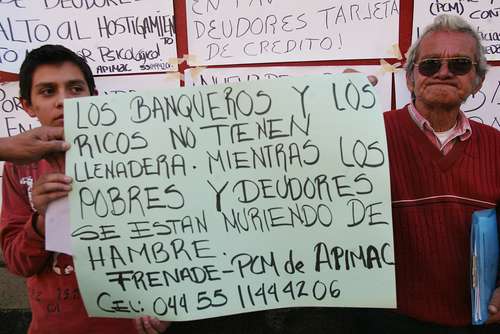 DEUDORES
ALTO al HOSTIGAMIENTO
POR PSICOLÓGICO
APIMAC
EN FAV
DEUDORES TARJETA
DE CREDITO!
(PCM)
CONT
LOS BANQUEROS Y LOS
RICOS NO TIENEN
LLENADERA. MIENTRAS LOS
POBRES Y DEUDORES
SE ESTAN MURIENDO DE
HAMBRE.
FRENADE-PCM de APIMAC
CEL: 044 55 11444206